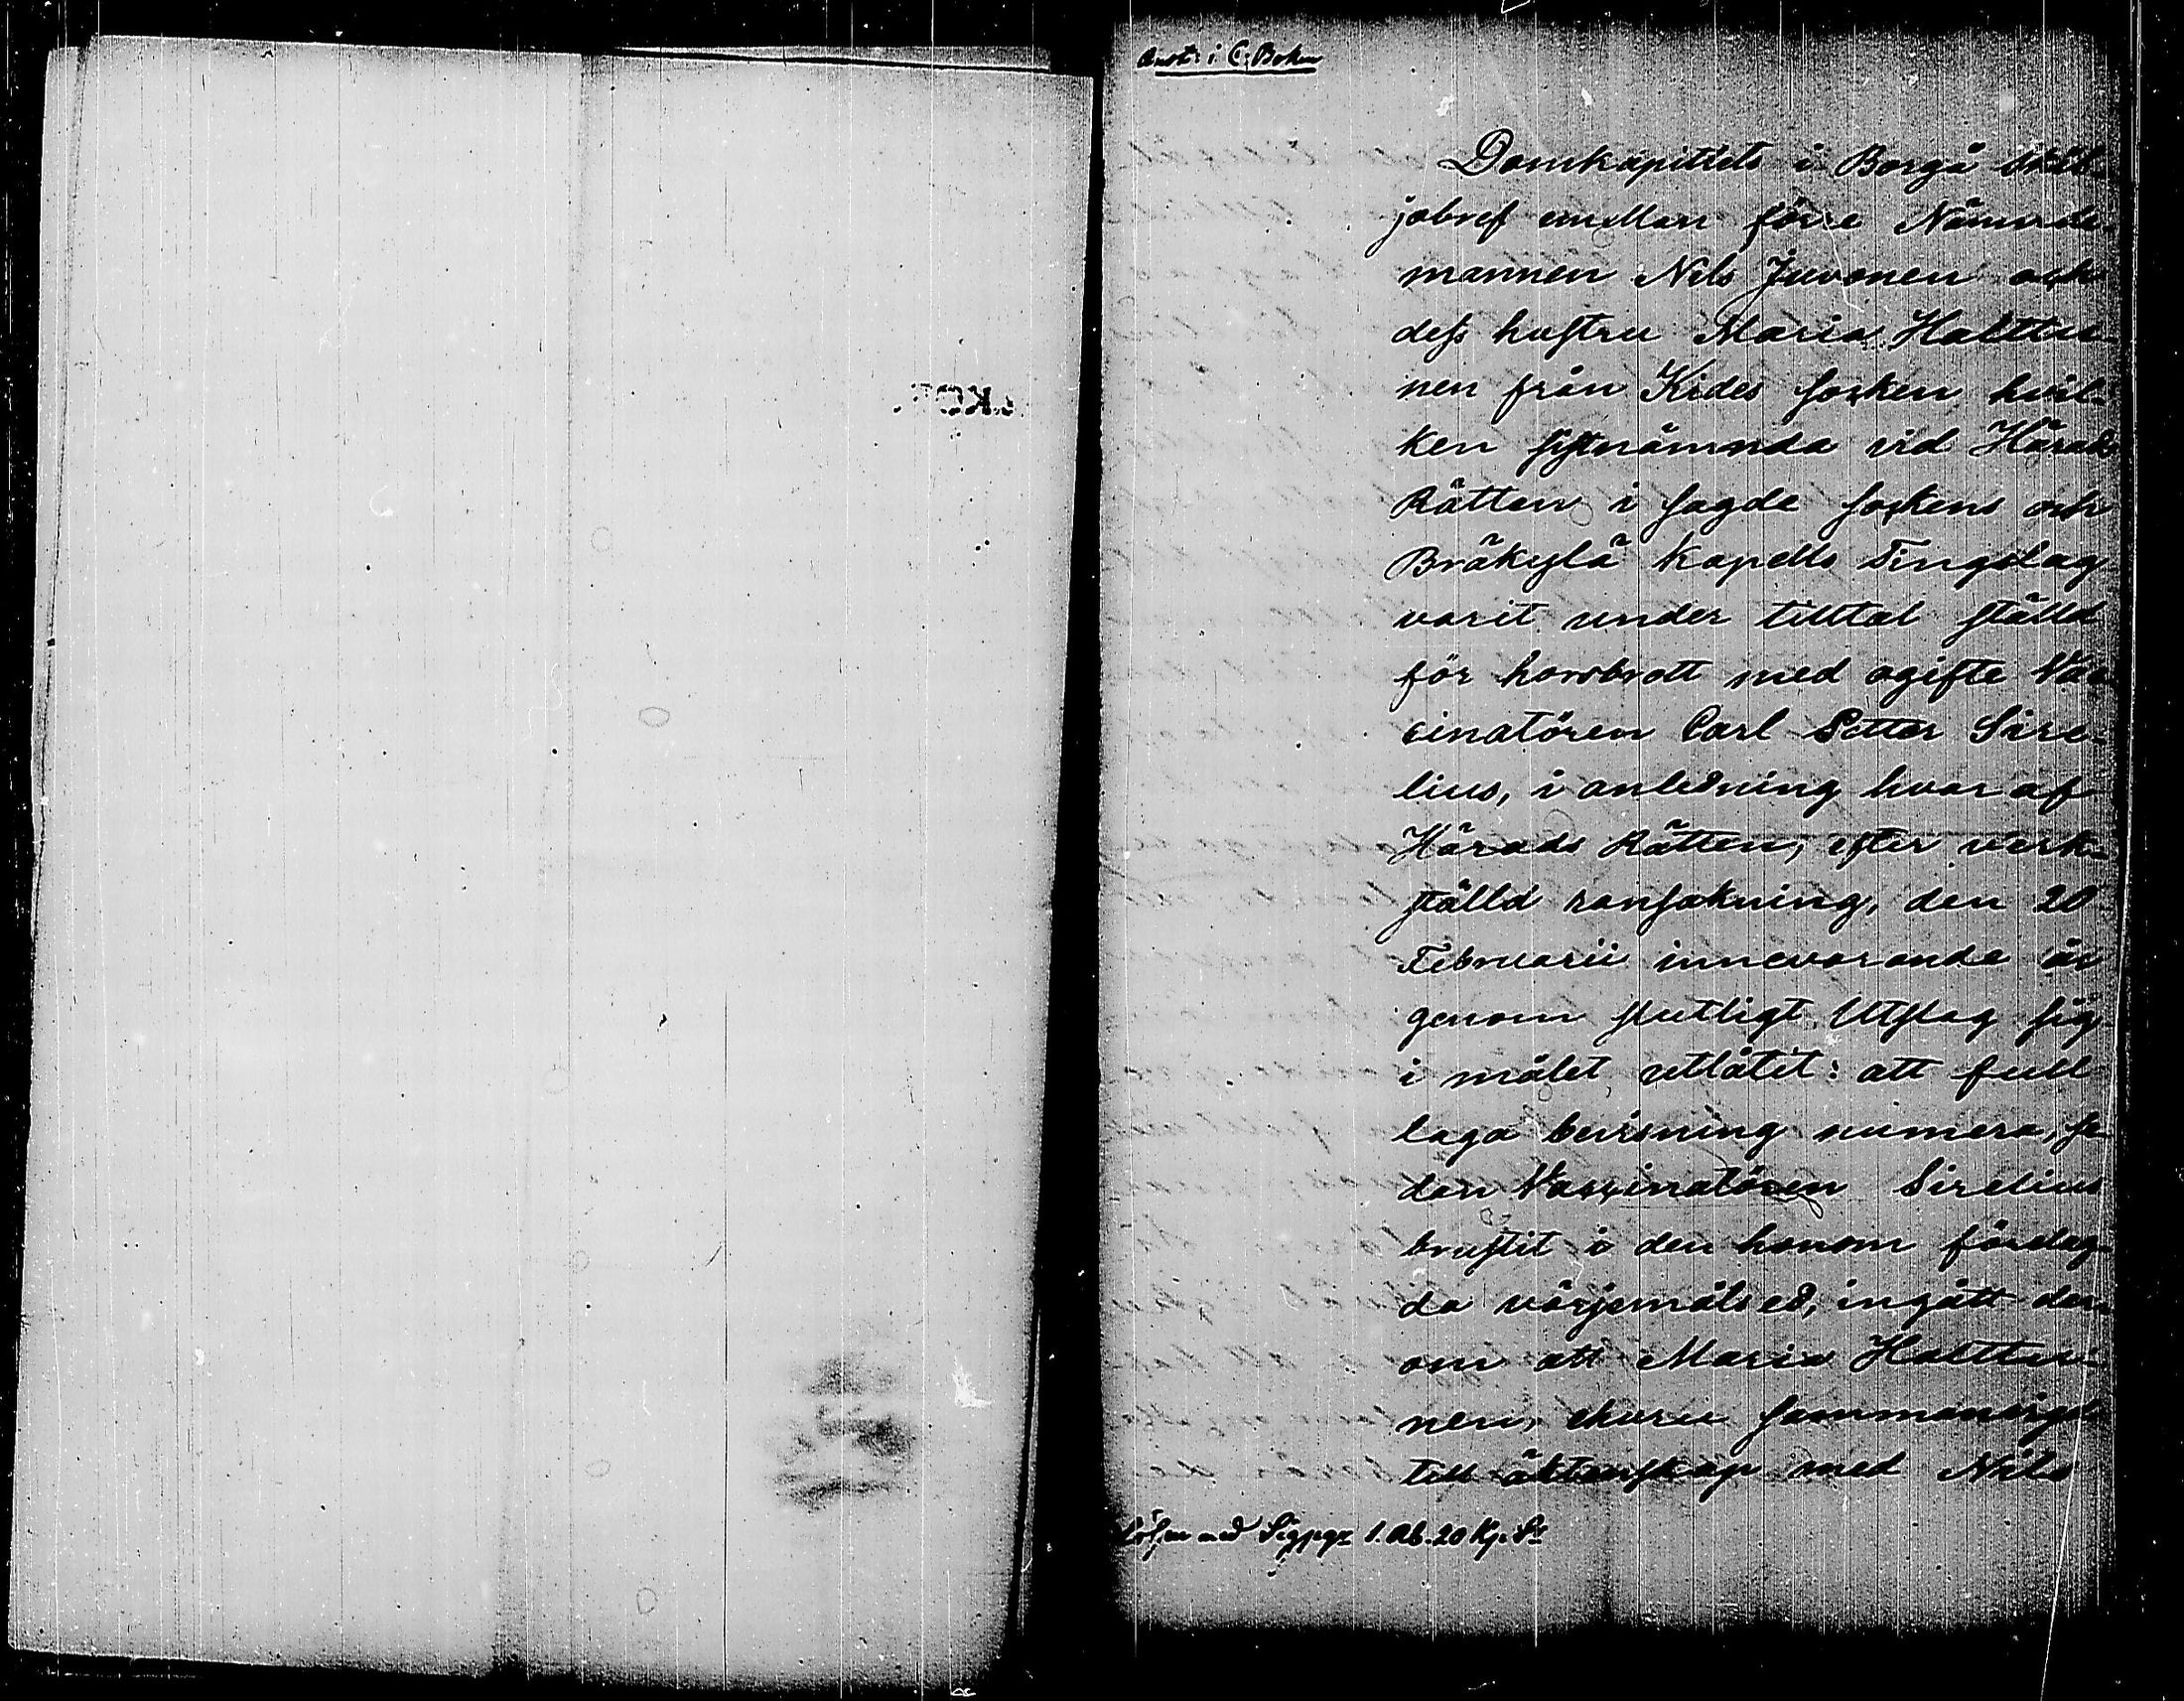 Anot: i C: Boken
Domkapitlets i Borgå skilj-
jobref emellan förre Nämnde-
mannen Nils Juvonen och
dess hustru Maria Halttu-
nen från Kides socken hvil-
ken sistnämnda vid Härads
Rätten i sagde sockens och
Bräkylä Kapells Tingslag
varit under tilltal ställd
för horsbrott med ogifte Vac-
cinatören Carl Petter Sire-
lius, i anledning hvaraf
Härads Rätten, efter verk-
ställd ransakning, den 20
Februarii innevarande år
genom slutligt Utslag sig
i målet utlåtit: att full
laga bevisning numera, se-
dan Vaccinatören Sirelius
brustit i den honom förelag-
da värjemåls ed, ingått der-
om att Maria Halttu-
nen, ehuru sammanvigd
till äktenskap med Nils
Lösen med Sigpgr 1. Rb. 20 Kp. Sr